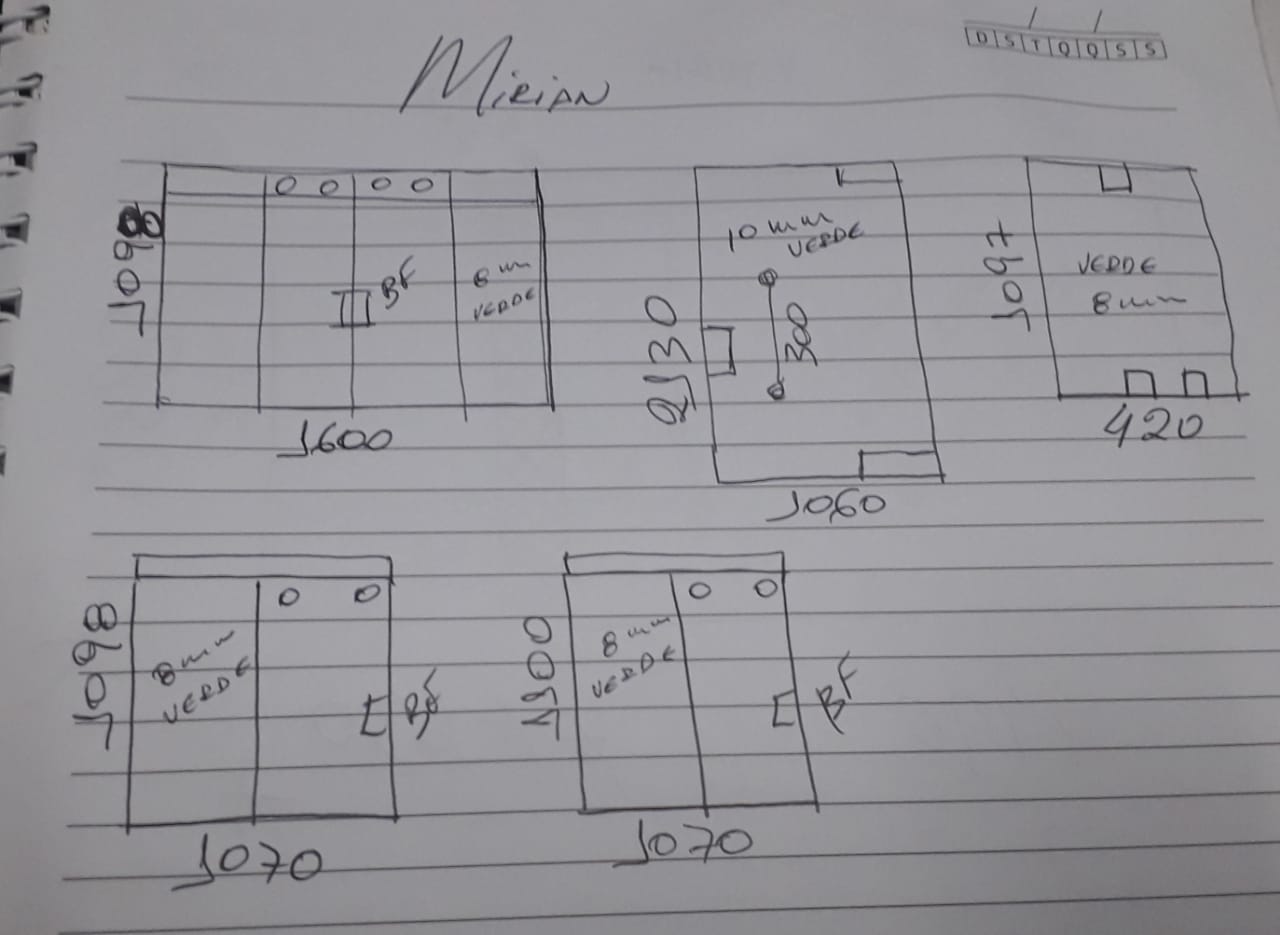 D S T Q Q S S
MIRIAN
1098
BF
8mm
VERDE
1600
10mm
VERDE
2130
300
1060
1097
VERDE
8mm
420
1098
8mm
VERDE
BF
1070
8mm
VERDE
BF
1070